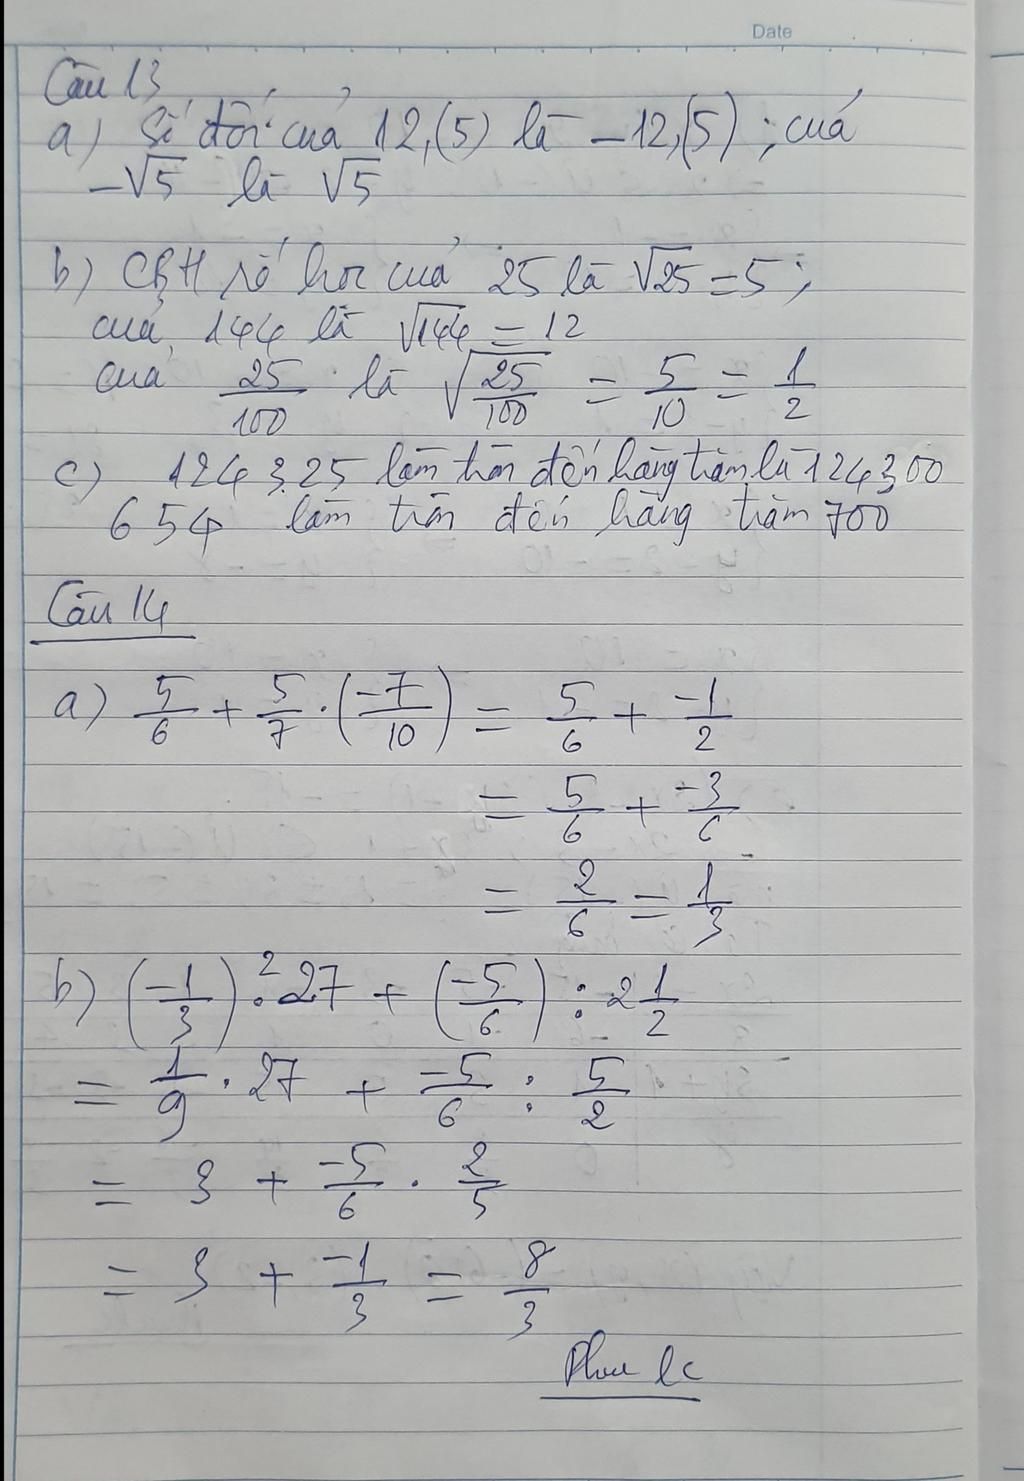 Date
Câu 13
a) Số đối của 12,(5) là -12,(5); của
-√5 là √5
b) CBH số học của 25 là √25 = 5;
của 144 là √144 = 12
của 25/100 là √(25/100) = 5/10 = 1/2
c) 124325 làm tròn đến hàng trăm là 124300
654 làm tròn đến hàng trăm 700
Câu 14
a) 5/6 + 5/7 . (-7/10) = 5/6 + -1/2
= 5/6 + -3/6
= 2/6 = 1/3
b) (-1/3)² . 27 + (-5/6) : 2 1/2
= 1/9 . 27 + -5/6 : 5/2
= 3 + -5/6 . 2/5
= 3 + -1/3 = 8/3